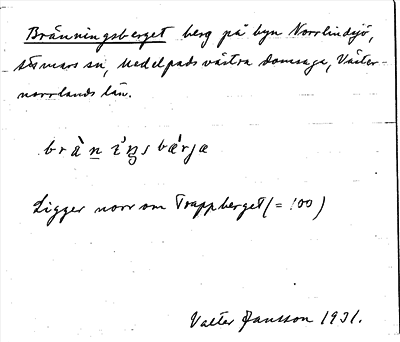 Bränningsberget berg på byn Norrlindsjö,
Attmars sn, Medelpads västra domsaga, Väster-
norrlands län.
bràni̇́ŋsbæ̀rja
Ligger norr om Trappberget (= :00)
Valter Jansson 1931.